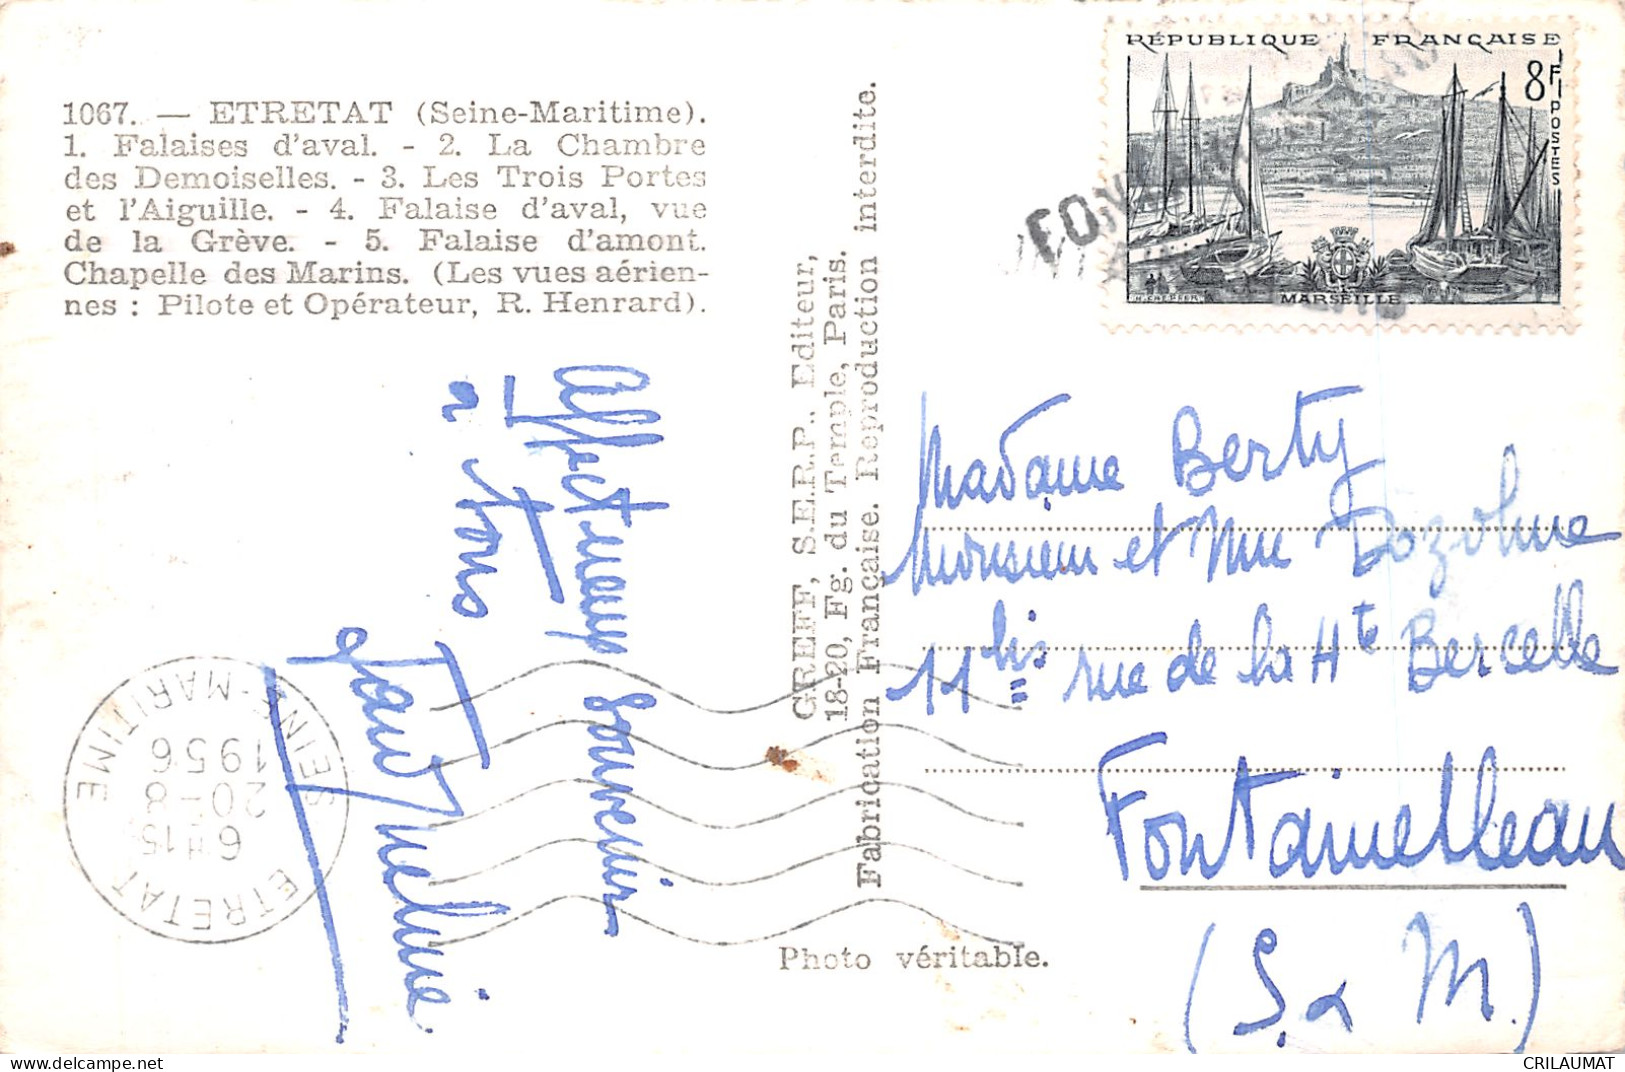 1067. — ETRETAT (Seine-Maritime).
1. Falaises d'aval. - 2. La Chambre
des Demoiselles. - 3. Les Trois Portes
et l'Aiguille. - 4. Falaise d'aval, vue
de la Grève. - 5. Falaise d'amont.
Chapelle des Marins. (Les vues aérien-
nes : Pilote et Opérateur, R. Henrard).
RÉPUBLIQUE FRANÇAISE
8F
POSTES
MARSEILLE
GREFF, S.E.R.P., Editeur,
18-20, Fg. du Temple, Paris.
Fabrication Française. Reproduction interdite.
Affectueux souvenir
à tous
ETRETAT
SEINE-MARITIME
6H15
20-8
1956
Madame Berty
Monsieur et Mme
11 bis rue de la Hte Bercelle
Fontainebleau
(S. & M.)
Photo véritable.
CRILAUMAT